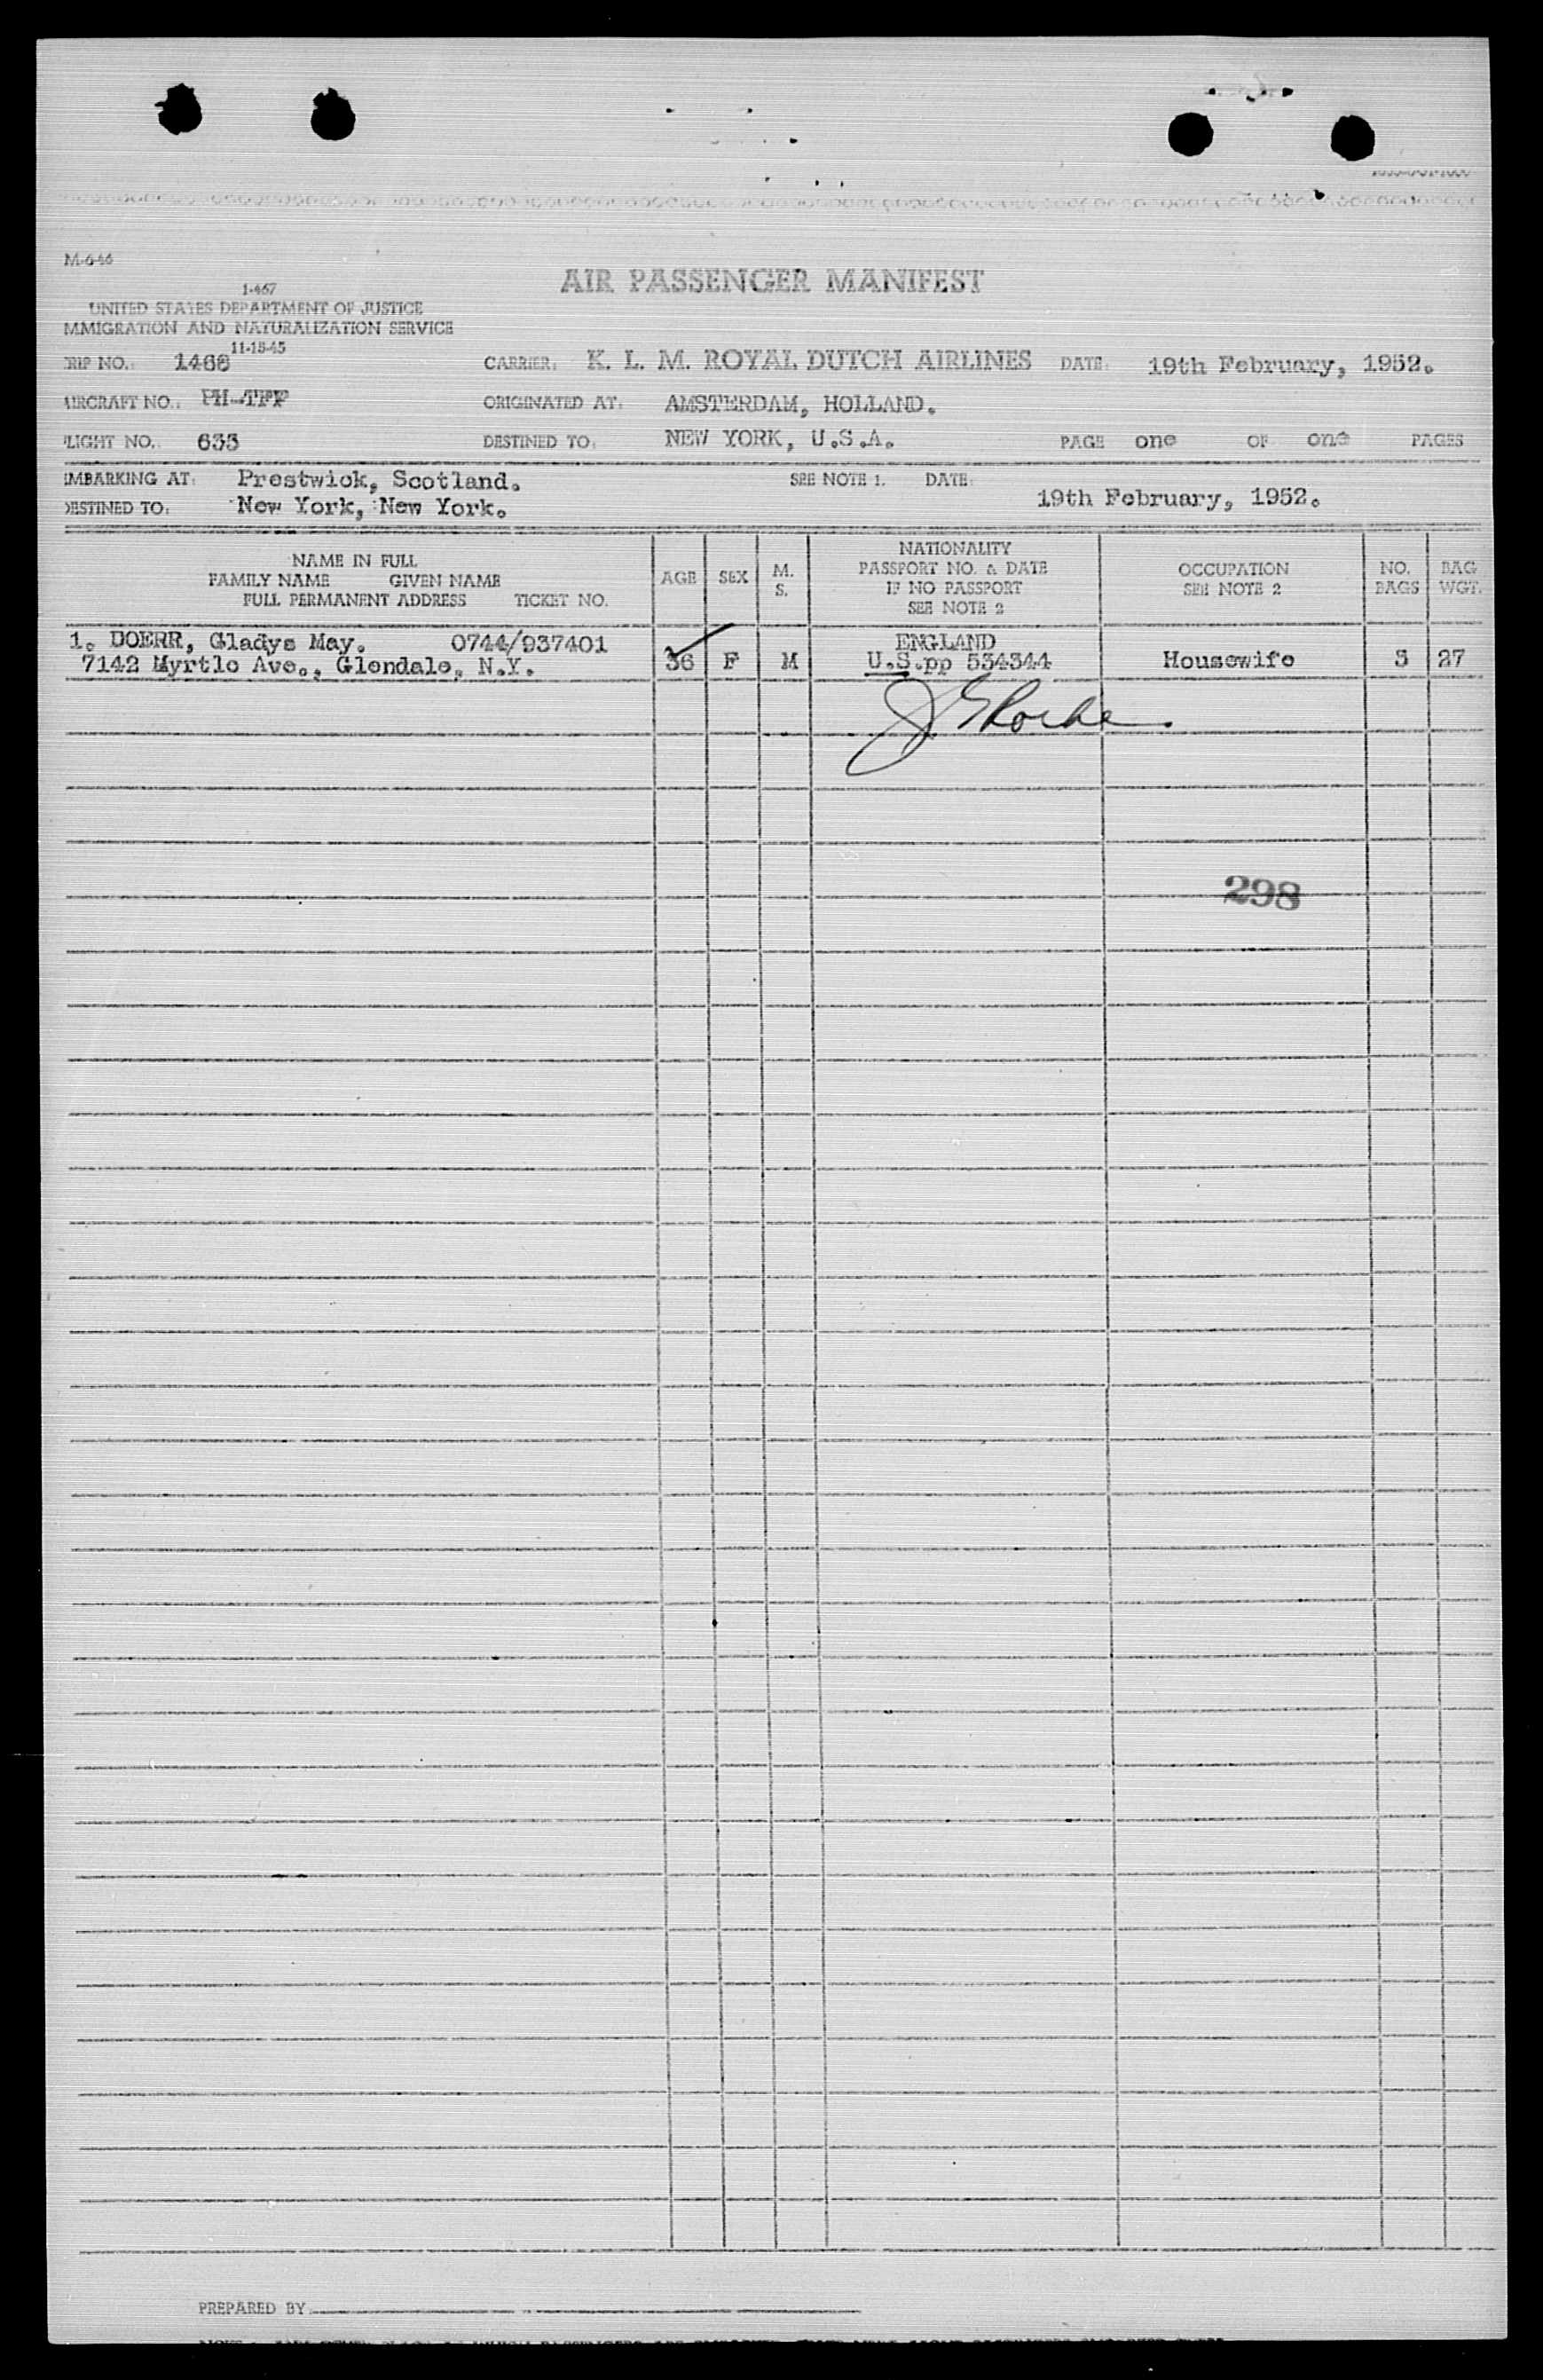 M-646
AIR PASSENGER MANIFEST
1-467
UNITED STATES DEPARTMENT OF JUSTICE
MMIGRATION AND NATURALIZATION SERVICE
11-15-45
RIP NO.: 1468 CARRIER: K. L. M. ROYAL DUTCH AIRLINES DATE: 19th February, 1952.
AIRCRAFT NO.: PH-TFF ORIGINATED AT: AMSTERDAM, HOLLAND.
LIGHT NO. 635 DESTINED TO: NEW YORK, U.S.A. PAGE one OF one PAGES
MBARKING AT: Prestwick, Scotland. SEE NOTE 1. DATE: 19th February, 1952.
DESTINED TO: New York, New York.
NAME IN FULL
FAMILY NAME GIVEN NAME
FULL PERMANENT ADDRESS TICKET NO.
AGE
SEX
M.
S.
NATIONALITY
PASSPORT NO. & DATE
IF NO PASSPORT
SEE NOTE 2
OCCUPATION
SEE NOTE 2
NO.
BAGS
BAG
WGT.
1. DOERR, Gladys May. 0744/937401 ENGLAND
7142 Myrtle Ave., Glendale, N.Y. 36 F M U.S.pp 534344 Housewife 3 27
298
PREPARED BY